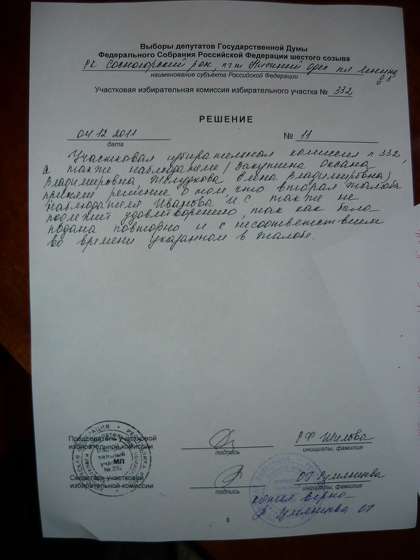 Выборы депутатов Государственной Думы
Федерального Собрания Российской Федерации шестого созыва
РК Сосногорский р-он, пгт Нижний Одес пл Ленина
наименование субъекта Российской Федерации
Участковая избирательная комиссия избирательного участка № 332
РЕШЕНИЕ
04.12.2011 № 11
дата
Участковая избирательная комиссия № 332,
а также наблюдатели Оксана
Владимировна Елена Владимировна)
приняли решение о том что вторая жалоба
наблюдателя Иванова И.С также не
подлежит удовлетворению, так как была
подана повторно и с несоответствием
во времени указанном в жалобе.
Председатель участковой
избирательной комиссии Шилова
подпись инициалы, фамилия
МП
Секретарь участковой
избирательной комиссии
подпись инициалы, фамилия
копия верна
8